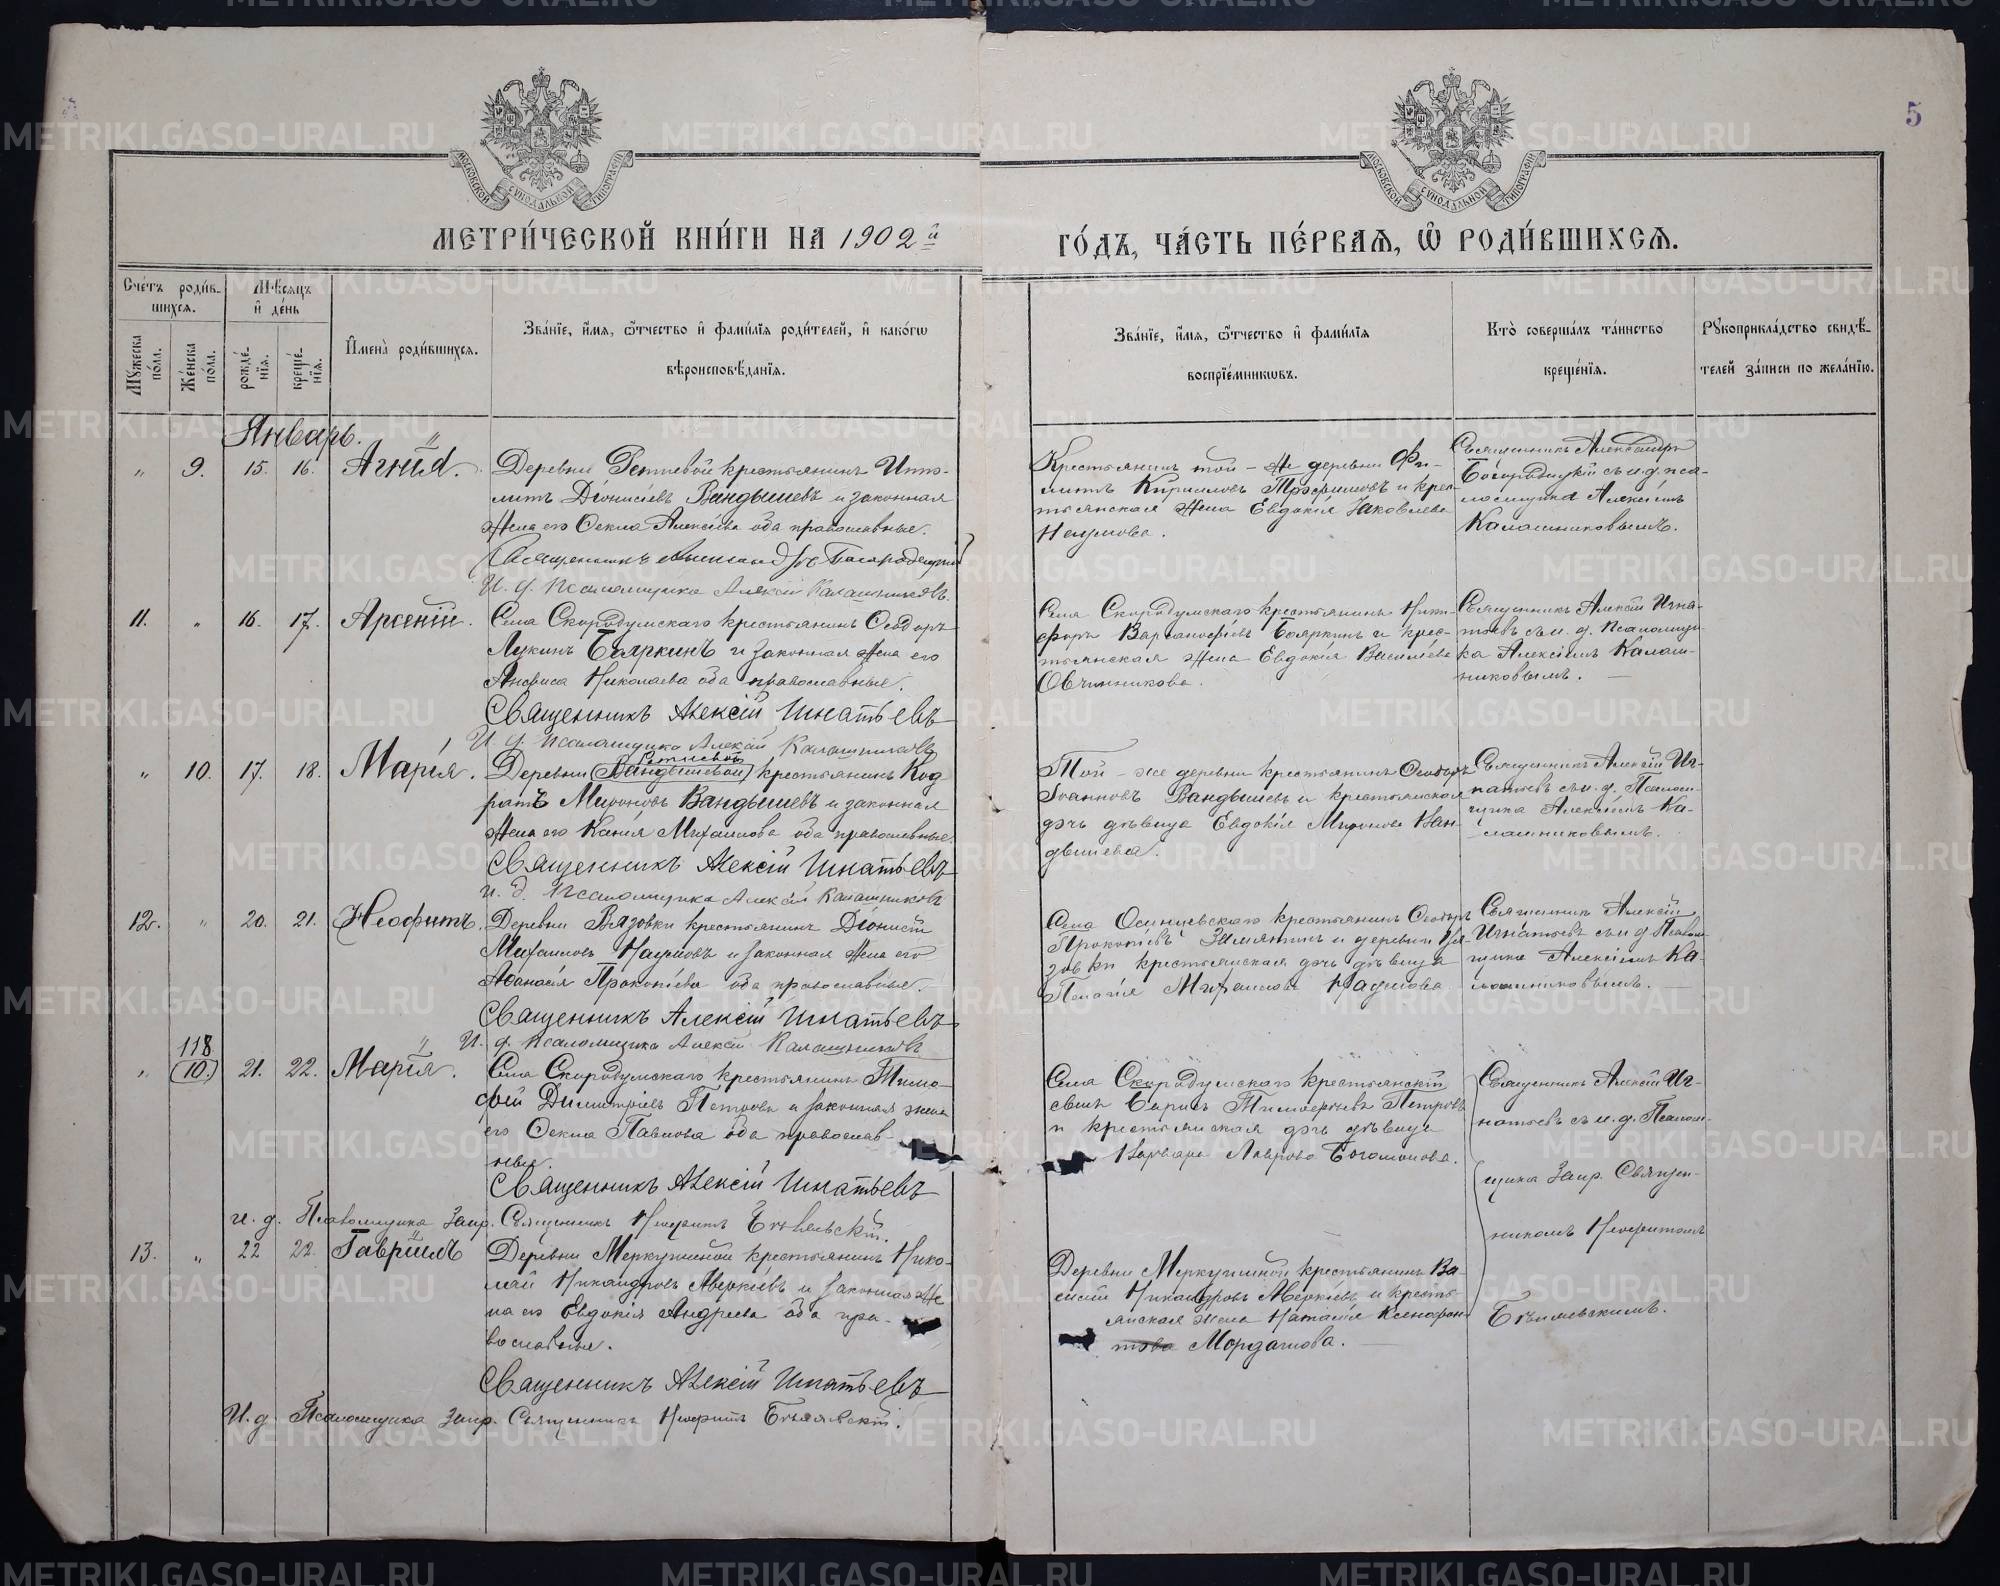 5
МОСКОВСКОЙ СѴНОДАЛЬНОЙ ТИПОГРАФІИ
МОСКОВСКОЙ СѴНОДАЛЬНОЙ ТИПОГРАФІИ
МЕТРИ́ЧЕСКОЙ КНИ́ГИ НА 1902й
ГО́ДЪ, ЧА́СТЬ ПЕ́РВАѦ, Ѿ РОДИ́ВШИХСѦ.
Сче́тъ роди́в-
шихся.
Мѣ́сяцъ
и де́нь
Му́жеска по́ла.
Же́нска по́ла.
рожде́-
нїя.
креще́-
нїя.
Имена̀ роди́вшихся.
Зва́нїе, и́мя, ѻ́тчество и фами́лїя роди́телей, и како́гѡ
вѣроисповѣ́данїя.
Зва́нїе, и́мя, ѻ́тчество и фами́лїя
воспрїе́мникѡвъ.
Кто̀ соверша́лъ та́инство
креще́нїя.
Рукоприкла́дство свидѣ́-
телей за́писи по жела́нїю.
Январь.
" 9. 15. 16. Агнія.
Деревни Ретневой крестьянинъ Иппо-
литъ Діонисіевъ Вандышевъ и законная
жена его Ѳекла Алексіева оба православные.
Священникъ Александръ Богородицкій
И. д. псаломщика Алексій Калашниковъ.
Крестьянинъ той-же деревни Фи-
липпъ Кирилловъ Трофимовъ и крес-
тьянская жена Евдокія Іаковлева
Наумова.
Священникъ Александръ
Богородицкій съ и. д. пса-
ломщика Алексіемъ
Калашниковымъ.
11. " 16. 17. Арсеній.
Села Скородумскаго крестьянинъ Ѳеодоръ
Лукинъ Бояркинъ и законная жена его
Анфиса Николаева оба православные.
Священникъ Алексій Игнатьевъ
И. д. псаломщика Алексій Калашниковъ
Села Скородумскаго крестьянинъ Ники-
форъ Варѳаноѳіевъ Бояркинъ и крес-
тьянская жена Евдокія Василіева
Овчинникова.
Священникъ Алексій Игна-
тьевъ съ и. д. Псаломщи-
ка Алексіемъ Калаш-
никовымъ.
" 10. 17. 18. Марія.
Ретневой
Деревни (Вандышевой) крестьянинъ Код
ратъ Мироновъ Вандышевъ и законная
жена его Ксенія Михаилова оба православные
Священникъ Алексій Игнатьевъ
и. д. Псаломщика Алексій Калашниковъ
Той-же деревни крестьянинъ Ѳеодоръ
Іоанновъ Вандышевъ и крестьянская
дочь дѣвица Евдокія Миронова Ван-
дышева.
Священникъ Алексій Иг-
натьевъ съ и. д. Псалом-
щика Алексіемъ Ка-
лашниковымъ.
12. " 20. 21. Неофитъ.
Деревни Вязовки крестьянинъ Діонисій
Михаиловъ Наумовъ и законная жена его
Аѳанасія Прокопіева оба православные.
Священникъ Алексій Игнатьевъ
И. д. Псаломщика Алексій Калашниковъ
Села Осинцевскаго крестьянинъ Ѳеодоръ
Прокопіевъ Замятинъ и деревни Вя-
зовки крестьянская дочь дѣвица
Пелагія Михаилова Наумова
Священникъ Алексій
Игнатьевъ съ и д Псалом-
щика Алексіемъ Ка-
лашниковымъ.
118
" (10.) 21. 22. Марія.
Села Скородумскаго крестьянинъ Тимо-
ѳей Димитріевъ Петровъ и законная жена
его Ѳекла Павлова оба православ-
ные.
Священникъ Алексій Игнатьевъ
и. д. Псаломщика Запр. Священникъ Неофитъ Бѣльскій.
Села Скородумскаго крестьянскій
сынъ Борисъ Тимоѳеевъ Петровъ
и крестьянская дочь дѣвица
Варвара Лаврова Богомолова.
Священникъ Алексій Иг-
натьевъ съ и. д. Псалом-
щика Запр. Священ-
никомъ Неофитомъ
13. " 22 22. Гавріилъ
Деревни Меркушиной крестьянинъ Нико-
лай Никандровъ Аверкіевъ и законная же
на его Евдокія Андреева оба пра-
вославные.
Священникъ Алексій Игнатьевъ
И. д Псаломщика Запр. Священникъ Неофитъ
Деревни Меркушиной крестьянинъ Ва-
силій Никандровъ Аверкіевъ и кресть-
янская жена Наталія Ксенофон-
това Мордашова.